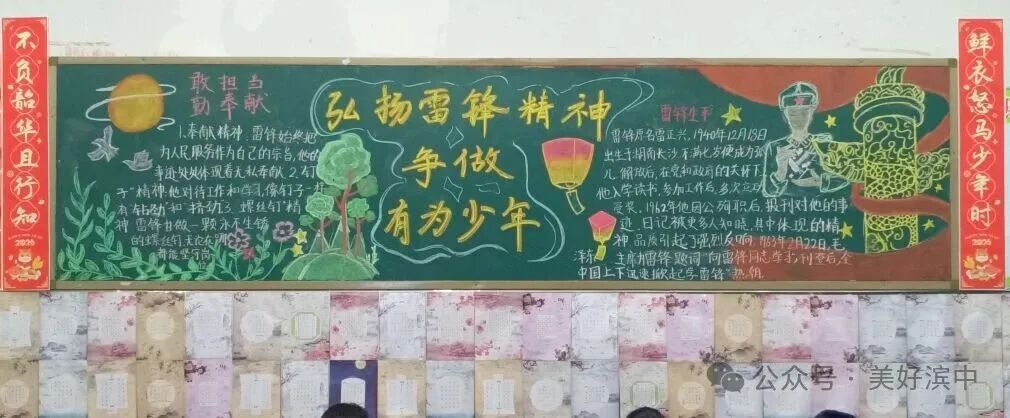 不负韶华且行知
2026
敢担当
勤奉献
1.奉献精神：雷锋始终把
为人民服务作为自己的宗旨，他的
事迹处处体现着无私奉献 2.钉
子"精神：他对待工作和学习，像钉子一样
有"钻劲"和"挤劲"3.螺丝钉"精
神 雷锋甘做一颗永不生锈
的螺丝钉无论在
都能坚守岗
位
弘扬雷锋精神
争做
有为少年
雷锋生平
雷锋原名雷正兴，1940年12月18日
出生于湖南长沙,不满七岁便成为孤
儿,解放后,在党和政府的关怀下,
他入学读书,参加工作后,多次立功
受奖。1962年他因公殉职后,报刊对他的事
迹、日记被更多人知晓,其中体现的精
神品质引起了强烈反响,1963年2月22日,毛
泽东主席为雷锋题词"向雷锋同志学习"刊登后,全
中国上下迅速掀起学"雷锋"热潮
鲜衣怒马少年时
2026
公众号 · 美好滨中